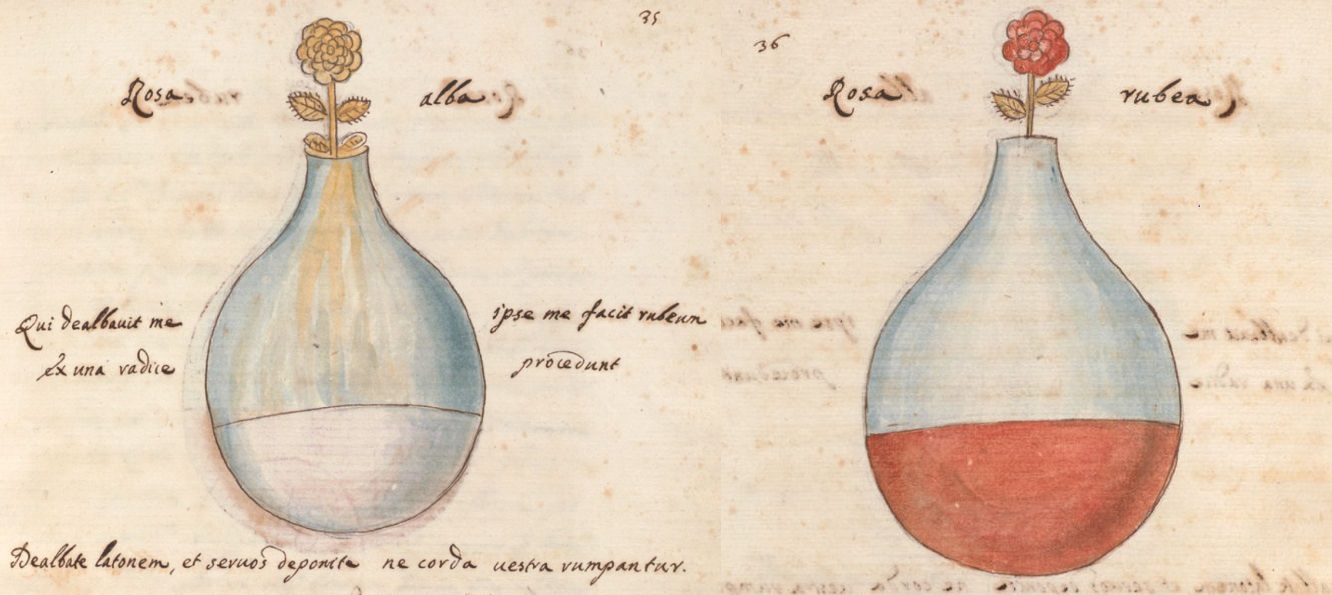 35
Rosa alba
Qui dealbauit me ipse me facit rubeum
Ex una radice procedunt
Dealbate latonem, et seruos deponite ne corda uestra rumpantur.
36
Rosa rubea